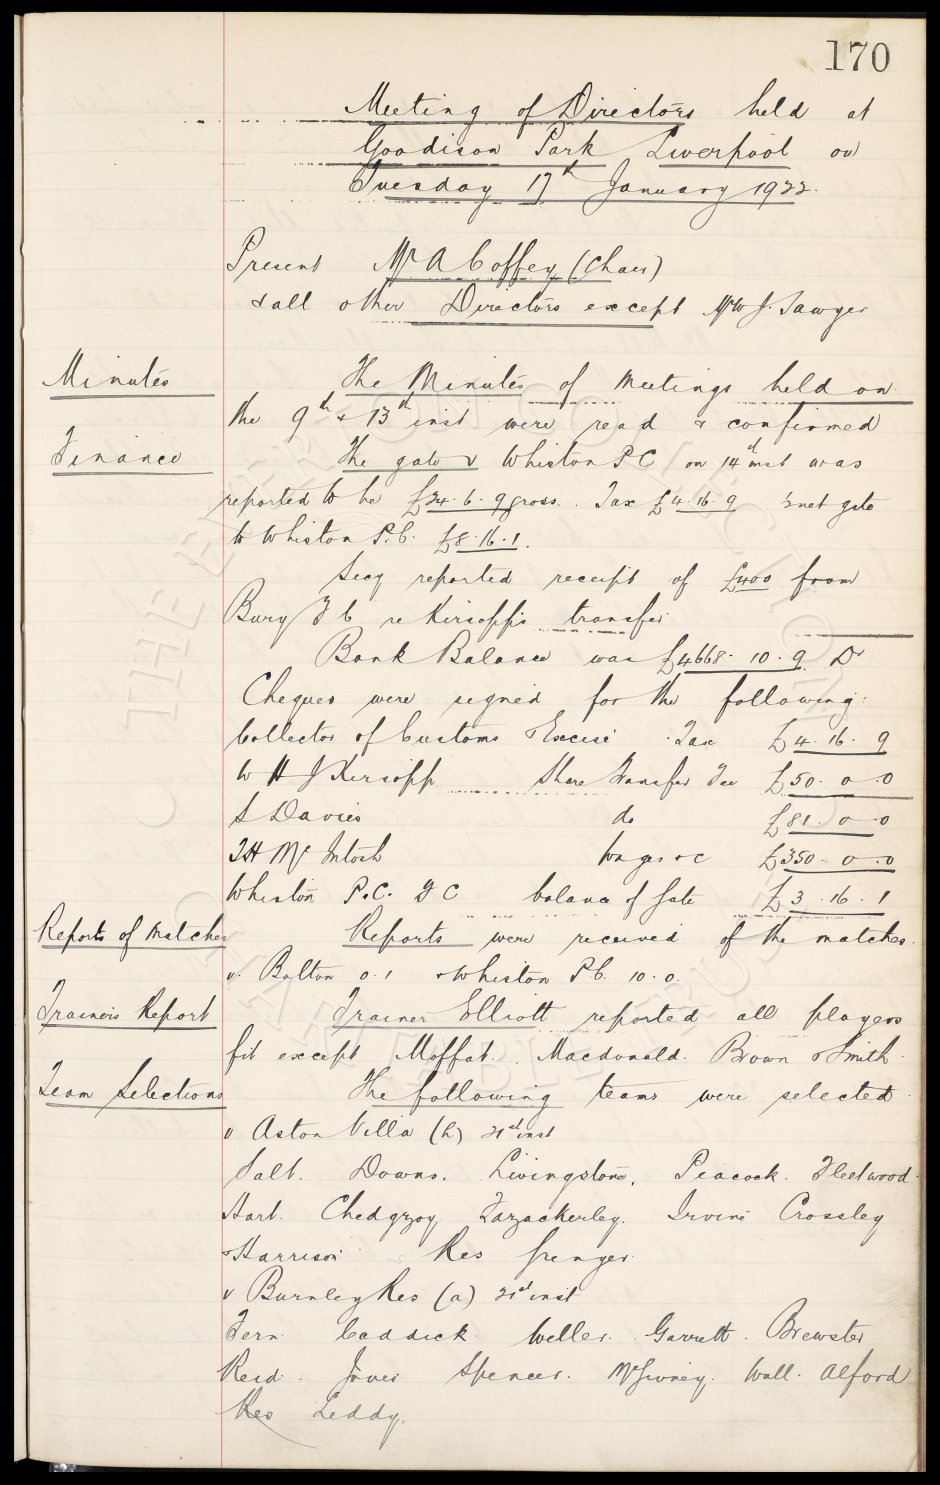 170
Meeting of Directors held at
Goodison Park Liverpool on
Tuesday 17th January 1922.
Present Mr A Coffey (Chair)
& all other Directors except Mr W J. Sawyer
Minutes The Minutes of meetings held on
the 9th & 13th inst were read & confirmed
Finance The gate v Whiston P C on 14th inst was
reported to be £24. 6. 9 gross. Tax £4. 16. 9 ½ net gate
to Whiston P. C. £8. 16. 1.
Secy reported receipt of £400 from
Bury F C re Kirsopp's transfer
Bank Balance was £4668. 10. 9 Dr
Cheques were signed for the following:
Collector of Customs & Excise Tax £4. 16. 9
W H J Kirsopp Share Transfer Fee £50. 0. 0
S Davies do £81. 0. 0
T H Mc Intosh Wages &c £350. 0. 0
Whiston P. C. F C balance of Gate £3. 16. 1
Reports of Matches Reports were received of the matches
v. Bolton 0. 1 & Whiston P. C. 10. 0.
Trainers Report Trainer Elliott reported all players
fit except Moffat. Macdonald. Brown & Smith.
Team Selections The following teams were selected
v Aston Villa (h) 21st inst
Salt. Downs. Livingstone. Peacock. Fleetwood.
Hart. Chedgzoy. Fazackerley. Irvine Crossley
& Harrison Res Grenyer
v Burnley Res (a) 21st inst
Fern. Caddick. Weller. Garrett. Brewster
Reid. Jones Spencer. Wall. Alford
Res Leddy.